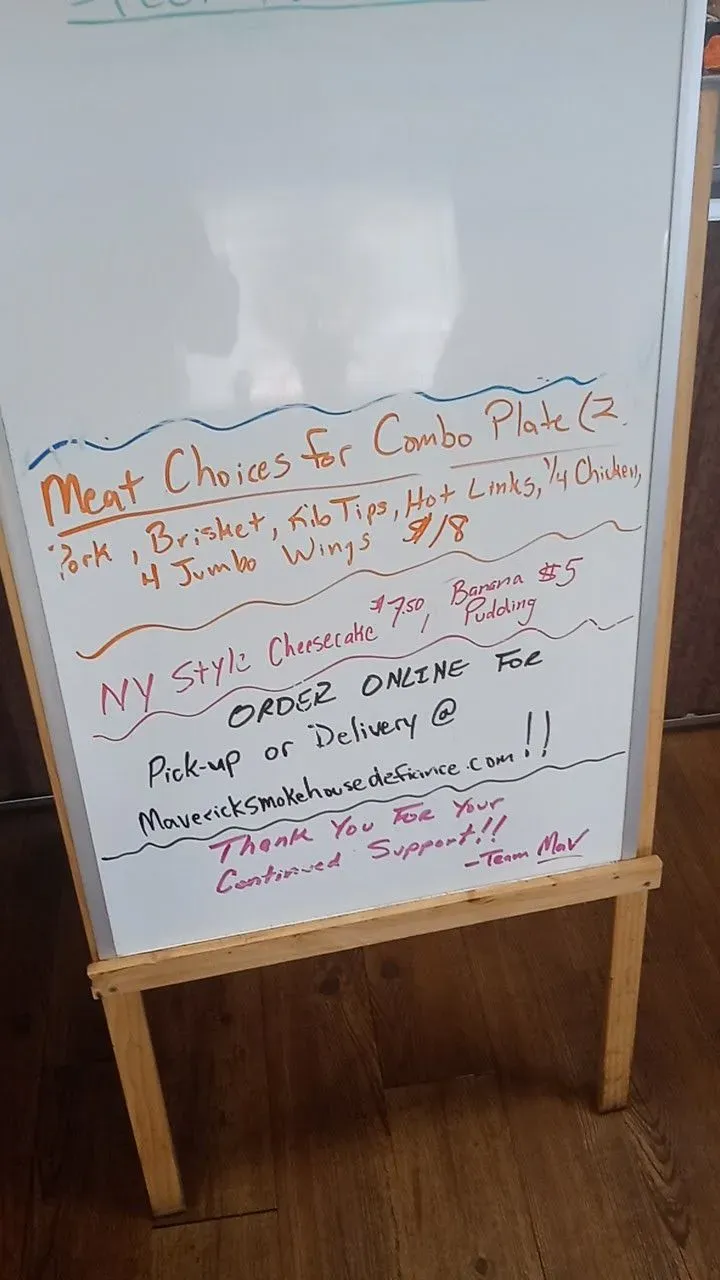 Meat Choices for Combo Plate (2
Pork, Brisket, Rib Tips, Hot Links, 1/4 Chicken,
4 Jumbo Wings $18
NY Style Cheesecake $7.50, Banana Pudding $5
ORDER ONLINE FOR
Pick-up or Delivery @
Mavericksmokehousedefiance.com!!
Thank You For Your
Continued Support!!
-Team Mav